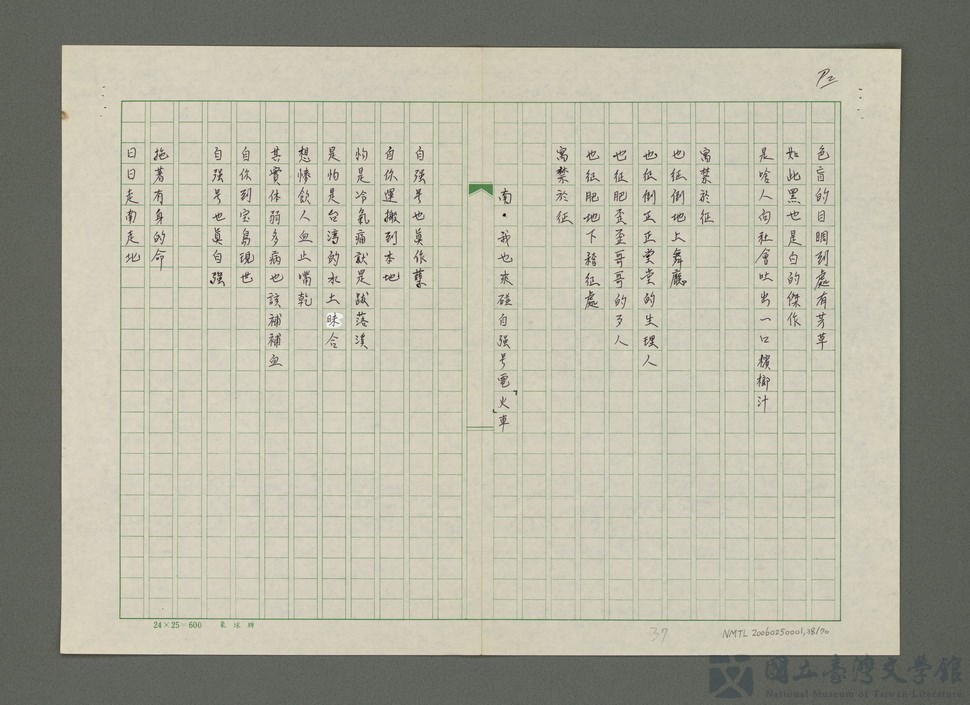 P2
色盲的目睭到處有芳草
如此黑也是白的傑作
是啥人向社會吐出一口檳榔汁
寓禁於征
也征倒地上舞廳
也征倒正正堂堂的生理人
也征肥歪歪哥哥的歹人
也征肥地下稽征處
寓禁於征
南·我也來碰自强号電火車
自强号也真作孽
自你運搬到本地
怕是冷氣痛就是跋落溪
是怕是台湾的水土昧合
想慘飲人血止嘴乾
其實体弱多病也該補補血
自你到宝島現世
自强号也真自强
拖著有身的命
日日走南走北
24×25=600
37
NMTL 20060250001,38/70
國立臺灣文學館
National Museum of Taiwan Literature